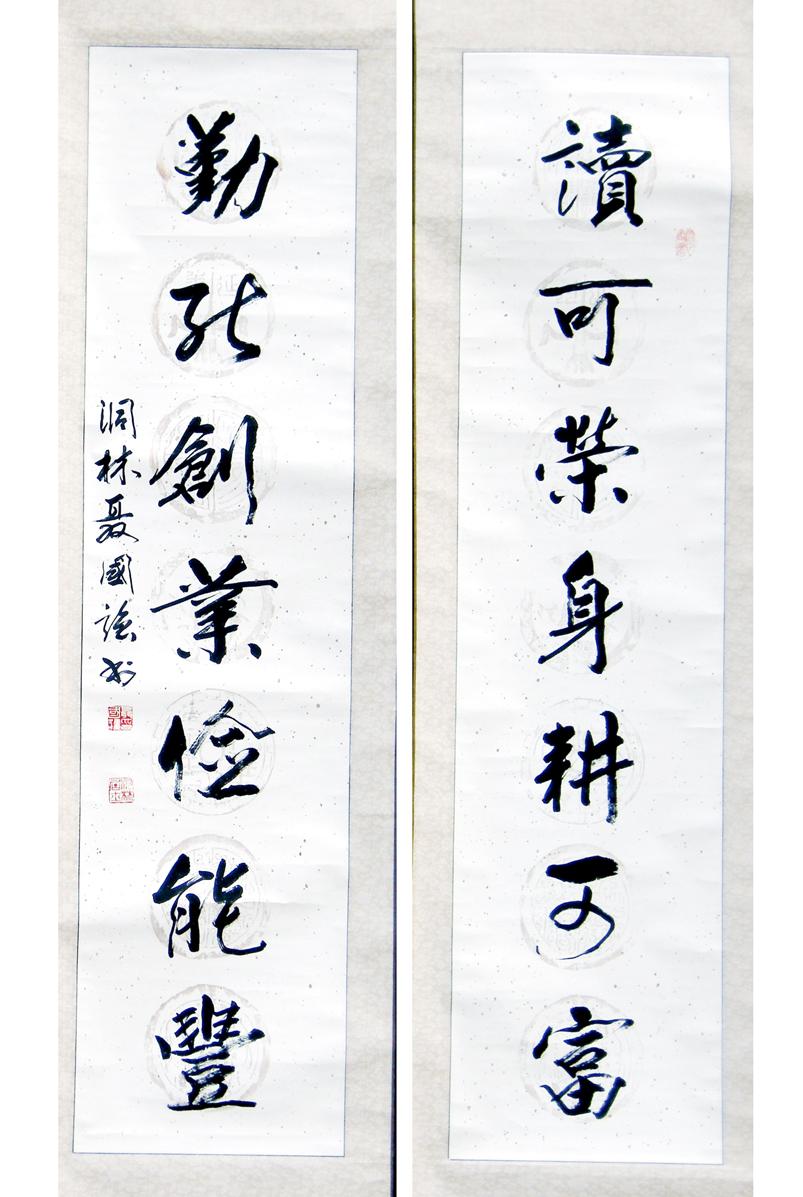 讀可榮身耕可富
勤能創業儉能豐
洞林聂國強书